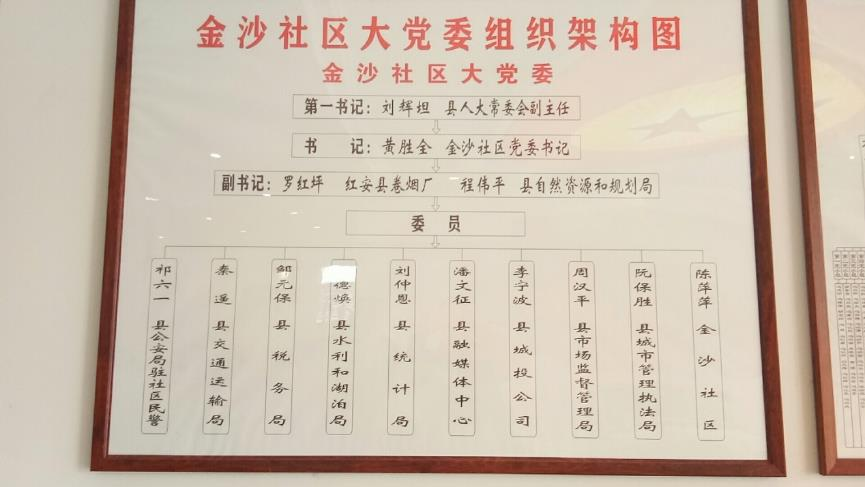 金沙社区大党委组织架构图
金沙社区大党委
第一书记：刘辉坦 县人大常委会副主任
书 记：黄胜全 金沙社区党委书记
副书记：罗红坪 红安县卷烟厂 程伟平 县自然资源和规划局
委 员
祁六一 县公安局驻社区民警
秦遥 县交通运输局
邹元保 县税务局
德焕 县水利和湖泊局
刘仲恩 县统计局
潘文征 县融媒体中心
李宁波 县城投公司
周汉平 县市场监督管理局
阮保胜 县城市管理执法局
陈萍萍 金沙社区